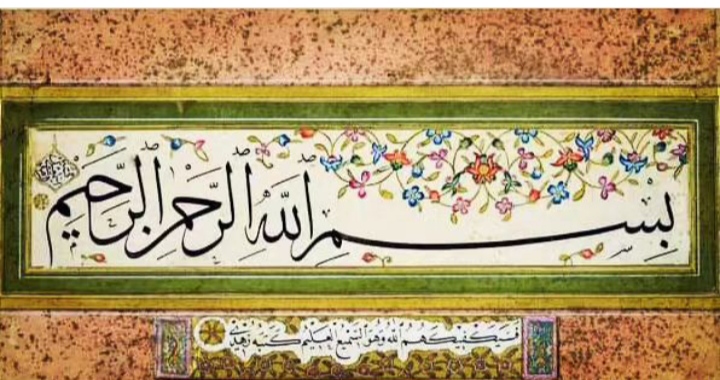 بِسْمِ اللهِ الرَّحْمٰنِ الرَّحِيمِ
فسيكفيكهم الله وهو السميع العليم كتبه